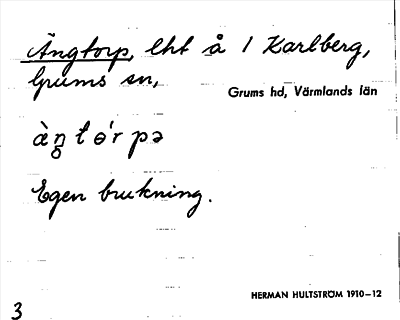 Ängtorp, lht å 1 Karlberg,
Grums sn,
Grums hd, Värmlands län
Egen brukning.
HERMAN HULTSTRÖM 1910–12
3